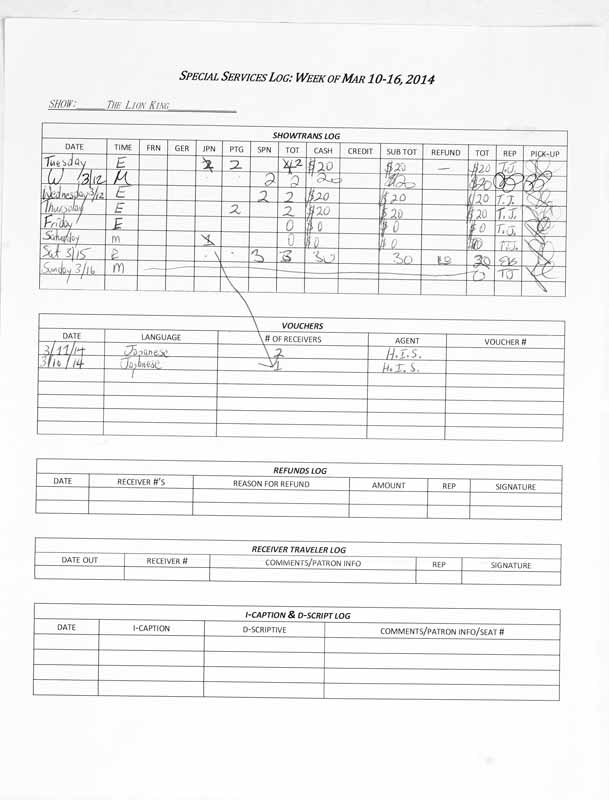 SPECIAL SERVICES LOG: WEEK OF MAR 10-16, 2014
SHOW: THE LION KING
SHOWTRANS LOG
DATE TIME FRN GER JPN PTG SPN TOT CASH CREDIT SUB TOT REFUND TOT REP PICK-UP
Tuesday E 2 2 $20 $20 — $20 T.J.
W 3/12 M 2 2 $20 $20 $20
Wednesday 3/12 E 2 2 $20 $20 $20 T.J.
Thursday E 2 2 $20 $20 $20 T.J.
Friday E 0 $0 $0 $0 T.J.
Saturday M 1 0 $0 $0 0 T.J.
Sat 3/15 E 3 3 30 30 30
Sunday 3/16 M 0 TJ
VOUCHERS
DATE LANGUAGE # OF RECEIVERS AGENT VOUCHER #
3/11/14 Japanese 2 H.I.S.
Japanese 1 H.I.S.
REFUNDS LOG
DATE RECEIVER #'S REASON FOR REFUND AMOUNT REP SIGNATURE
RECEIVER TRAVELER LOG
DATE OUT RECEIVER # COMMENTS/PATRON INFO REP SIGNATURE
I-CAPTION & D-SCRIPT LOG
DATE I-CAPTION D-SCRIPTIVE COMMENTS/PATRON INFO/SEAT #